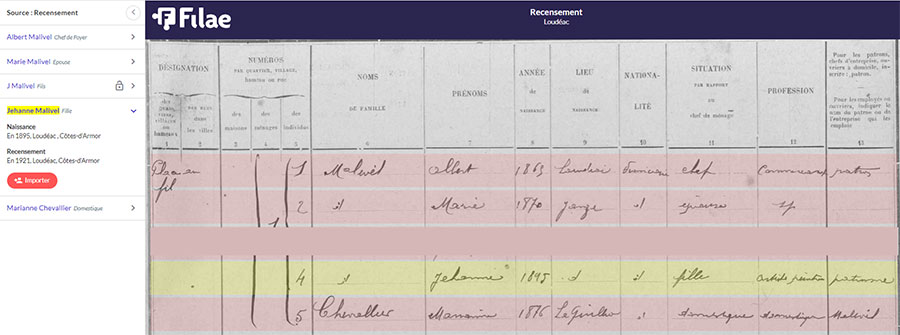 Source : Recensement
Albert Malivel Chef de Foyer
Marie Malivel Epouse
J Malivel Fils
Jehanne Malivel Fille
Naissance
En 1895, Loudéac, Côtes-d'Armor
Recensement
En 1921, Loudéac, Côtes-d'Armor
Importer
Marianne Chevallier Domestique
Filae
Recensement
Loudéac
DÉSIGNATION
NUMÉROS
PAR QUARTIER, VILLAGE,
hameau ou rue
NOMS
DE FAMILLE
PRÉNOMS
ANNÉE
de
NAISSANCE
LIEU
de
NAISSANCE
NATIONA-
LITÉ
SITUATION
PAR RAPPORT
au
chef du ménage
PROFESSION
Pour les patrons,
chefs d'entreprise, ou-
vriers à domicile, ins-
crire : patron.
Pour les employés ou
ouvriers, indiquer le
nom du patron ou de
l'entreprise qui les
emploie
des
maisons
des
ménages
des
individus
1 2 3 4 5 6 7 8 9 10 11 12 13
1 Malivel Albert 1863 Loudéac chef patron
2 id Marie 1870 id épouse
4 Jehanne 1895 id fille artiste peintre patronne
5 Chevallier Marianne 1876 domestique domestique Malivel